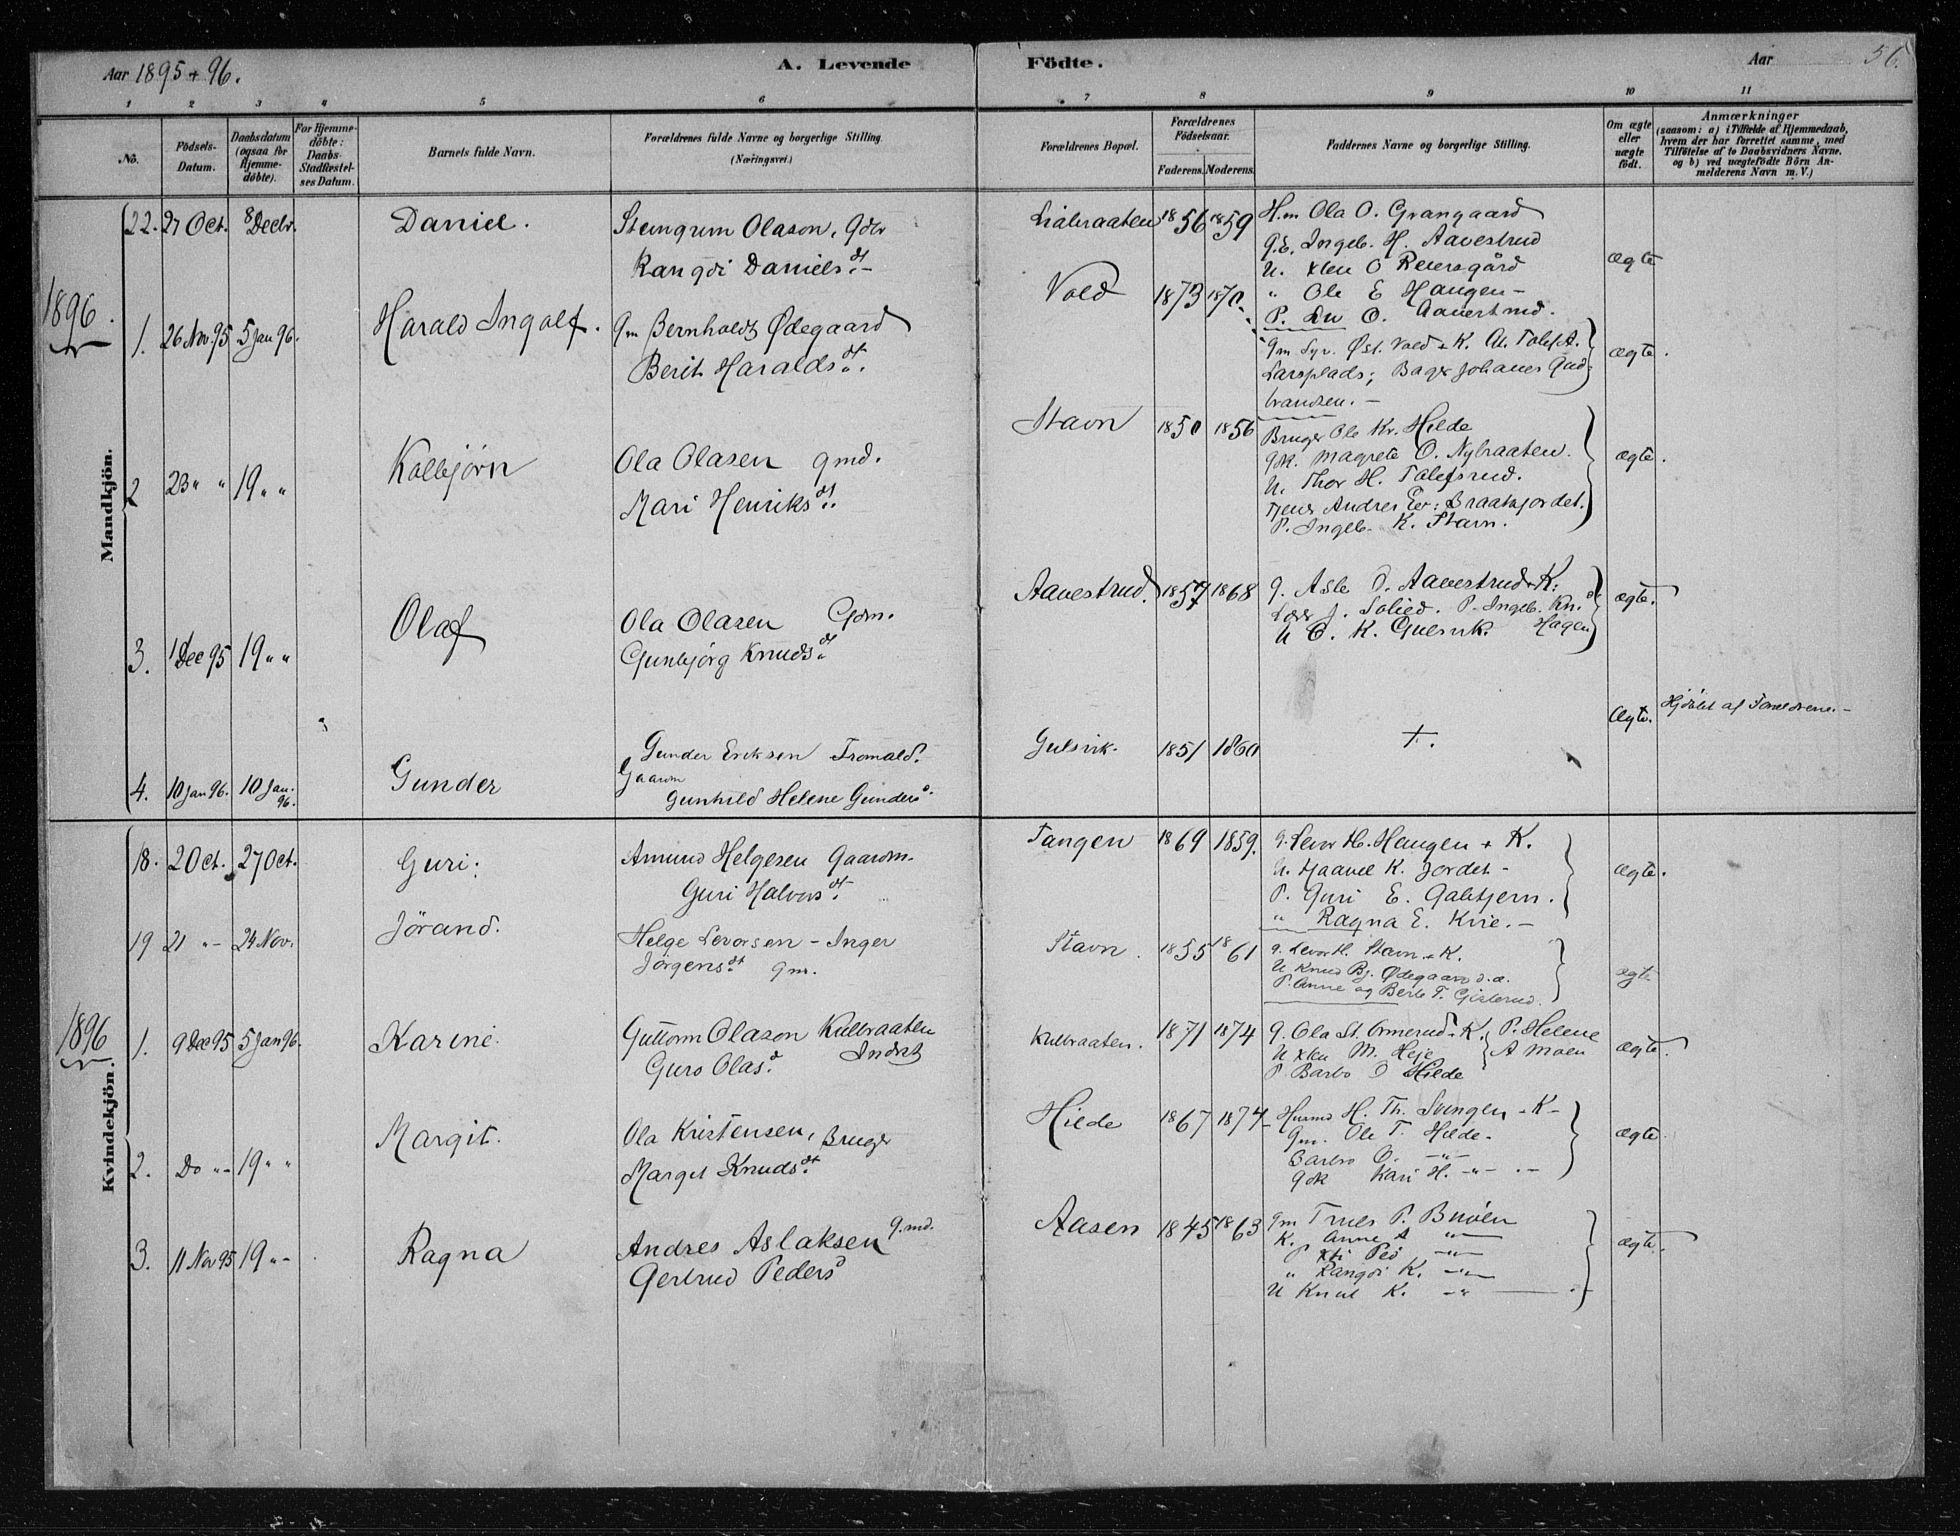 Aar 1895 + 96.
A. Levende
Födte.
Aar
56.
1 2 3 4 5 6 7 8 9 10 11
No.
Födsels-
Datum.
Daabsdatum
(ogsaa for
Hjemme-
döbte).
For Hjemme-
döbte:
Daabs-
Stadfæstel-
ses Datum.
Barnets fulde Navn.
Forældrenes fulde Navne og borgerlige Stilling
(Næringsvei.)
Forældrenes Bopæl.
Forældrenes
Födselsaar.
Faderens. Moderens.
Faddernes Navne og borgerlige Stilling.
Om ægte
eller
uægte
födt.
Anmærkninger
(saasom: a) i Tilfælde af Hjemmedaab,
hvem der har forrettet samme, med
Tilföielse af to Daabsvidners Navne,
og b) ved uægtefödte Börn An-
melderens Navn m. V.)
Mandkjön.
22. 27 Oct. 8 Decbr.
Daniel.
Steingrim Olason, Gdbr
Rangdi Daniels dt. –
Liabraaten 1856 1859
H.m Ola O. Grangaard
G.E. Ingeb. H. Aavestrud
U. O Reiersgård
" Ole E Haugen –
P. Liv O. Aavestrud.
ægte
1896.
1. 26 Nov. 95 5 Jan 96.
Harald Ingolf.
Gm Bernholdt Ødegaard
Berit Haralds dt.
Vold 1873 1870.
Gm Syv. Øst. Vold + K. At. Tolefst.
Larsplads; Bager Johanes Gud-
brandsen. –
ægte.
2 23 " " 19 " "
Kolbjørn
Ola Olasen gmd.
Mari Henriks dt.
Stavn 1850 1856
Bruger Ole Kr. Hilde
Gdk. Magrete O. Nybraaten.
U. Thor H. Tolefsrud.
Tjener Andres Ev: Braatajordet.
P. Ingeb. K. Stavn.
ægte.
3. 1 Dec 95 19 " "
Olaf
Ola Olasen Gdm.
Gunbjörg Knuds dt
Aavestrud. 1857 1868
G. Asle O. Aavestrud + K.
Lærer J. Solied. P. Ingeb. Kn. d
U O. K. Gulsvik. Hagen
ægte.
4. 10 Jan 96. 10 Jan. 96.
Gunder
Gunder Eriksen Tromald.
Gaarm
Gunhild Helene Gunders d.
Gulsvik. 1851 1860
+.
Ægte.
Hjdöbt af Forældrene. –
Kvindekjön.
18. 20 Oct. 27 Oct.
Guri.
Amund Helgesen Gaarm.
Guri Halvors dt.
Tangen 1869 1859.
G. Levor H. Haugen + K.
U. Haavel K. Jordet –
P. Guri E. Galtjern.
" Ragna E. Krie. –
ægte.
19 21 " – 24 Nov.
Jörand.
Helge Levorsen – Inger
Jörgens dt gm.
Stavn. 1855 1861
G. Levor H. Stavn + K.
U Knud Bj. Ødegaard
P. Anne og Berte T. Gislerud.
ægt
1896
1. 9 Dec 95 5 Jan 96.
Karine.
Guttorm Olason Kulbraaten
Guro Olas d. Indst
Kulbraaten. 1871 1874
G. Ola St. Ormerud + K. P. Helene
U M. Heje A Moen
P. Barbo O Hilde
ægte.
2. Do " – 19 " "
Margit.
Ola Kristensen, Bruger
Margit Knuds dt.
Hilde 1867 1874
Husmd H. Th. Svingen – K –
Gm. Ole T. Hilde –
Barbro O. – " –
Gdk Kari H. – " – . –
ægte.
3. 11 Nov 95 19 " –
Ragna
Andres Aslaksen g.md.
Gertrud Peders d
Aasen 1845 1863
Gm Truls P. Buöen
K. Anne A – " –
P Kti Ped – " –
" Rangdi K. – " –
U Knut K. – " –
ægte.